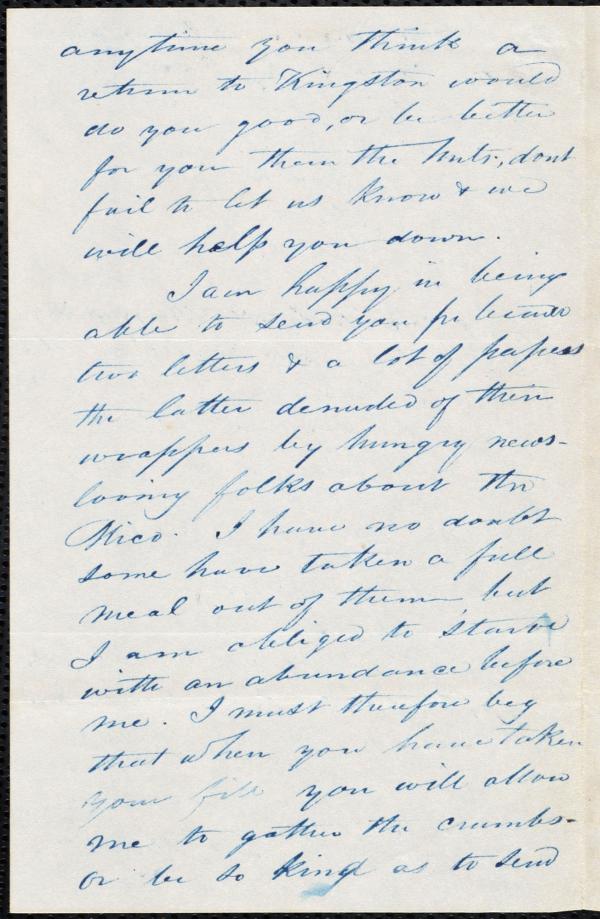 anytime you think a
return to Kingston would
do you good, or be better
for you than the huts, dont
fail to let us know & we
will help you down.
I am happy in being
able to send you pr bearer
two letters & a lot of papers
the latter denuded of their
wrappers by hungry news-
loving folks about the
Mico. I have no doubt
some have taken a full
meal out of them, but
I am obliged to starve
with an abundance before
me. I must therefore beg
that when you have taken
your fill you will allow
me to gather the crumbs-
or be so kind as to send